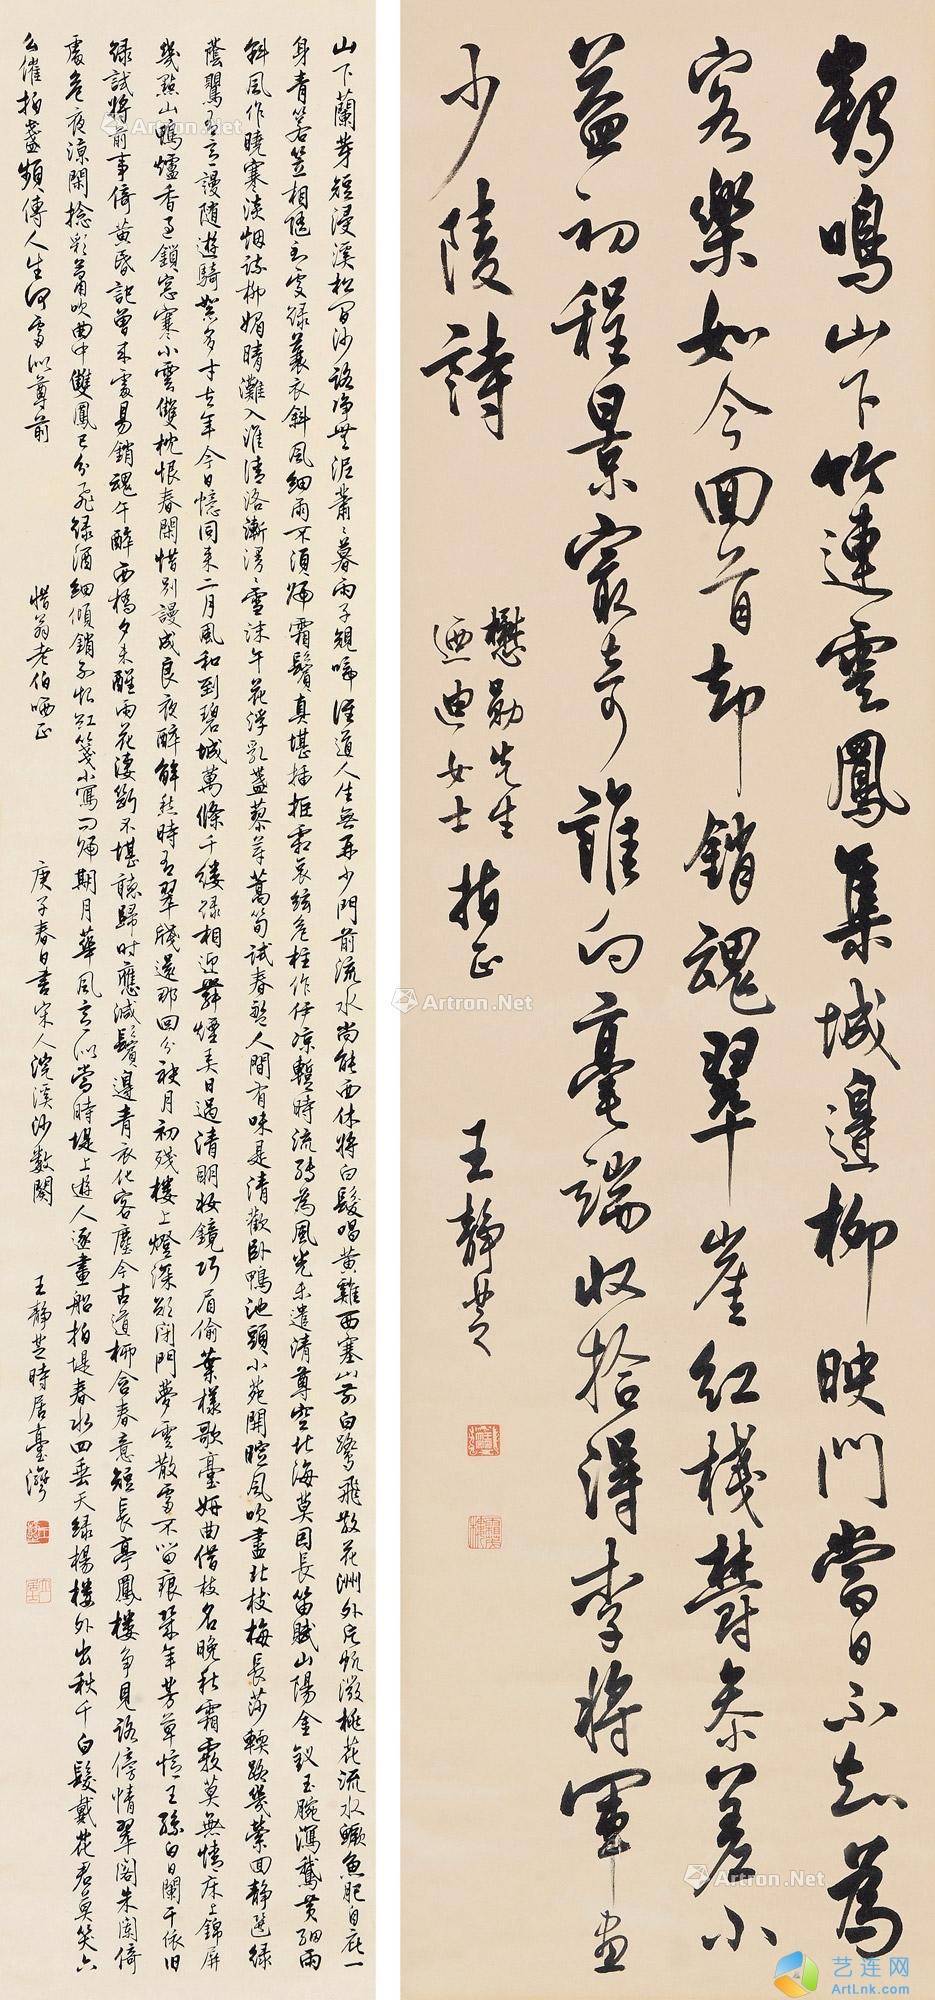 鶴鳴山下竹連雲鳳集城邊柳映門當日不知為
客樂如今回首却銷魂翠崖紅棧鬱參差小
益初程景最奇誰向豪端收拾得李將軍畫
少陵詩
懋勛先生
迺迪女士 指正 王靜芝
山下蘭芽短浸溪松間沙路淨無泥蕭〻暮雨子規啼誰道人生無再少門前流水尚能西休將白髮唱黃雞西塞山前白鷺飛散花洲外片帆微桃花流水鱖魚肥自庇一
身青箬笠相隨到處綠蓑衣斜風細雨不須歸霜鬢真堪插拒霜哀絃危柱作伊涼暫時流轉為風光未遣清尊空北海莫因長笛賦山陽金釵玉腕瀉鵝黃細雨
斜風作曉寒淡烟疎柳媚晴灘入淮清洛漸漫〻雪沫午花浮乳盞蓼茸蒿筍試春盤人間有味是清歡臥鴨池頭小苑開暄風吹盡北枝梅長莎輭路幾縈回靜避綠
蔭鶯有意謾隨遊騎絮多才去年今日憶同來二月風和到碧城萬條千縷綠相迎舞煙美日過清明妝鏡巧眉偷葉樣歌臺妍曲借枝名晚秋霜霰莫無情床上錦屏
幾點山鴨爐香過鎖窗寒小雲雙枕恨春閑惜別謾成良夜醉解愁時有翠牋還那回分袂月初殘樓上燈深欲閉門夢雲散處不留痕幾年芳草憶王孫白日闌干依舊
綠試將前事倚黃昏記曾來處易銷魂午醉西橋夕未醒雨花淒斷不堪聽歸時應減鬢邊青衣化客塵今古道柳含春意短長亭鳳樓爭見路傍情翠閣朱闌倚
處危夜涼閑捻彩簫吹曲中雙鳳已分飛綠酒細傾銷別恨紅箋小寫問歸期月華風意似當時堤上遊人逐畫船拍堤春水四垂天綠楊樓外出秋千白髮戴花君莫笑六
么催拍盞頻傳人生何處似尊前
惜翁老伯哂正 庚子春日書宋人浣溪沙數闋 王靜芝時居臺灣
Artron.Net
Artron.Net
Artron.Net
Artron.Net
艺连网
ArtLnk.com